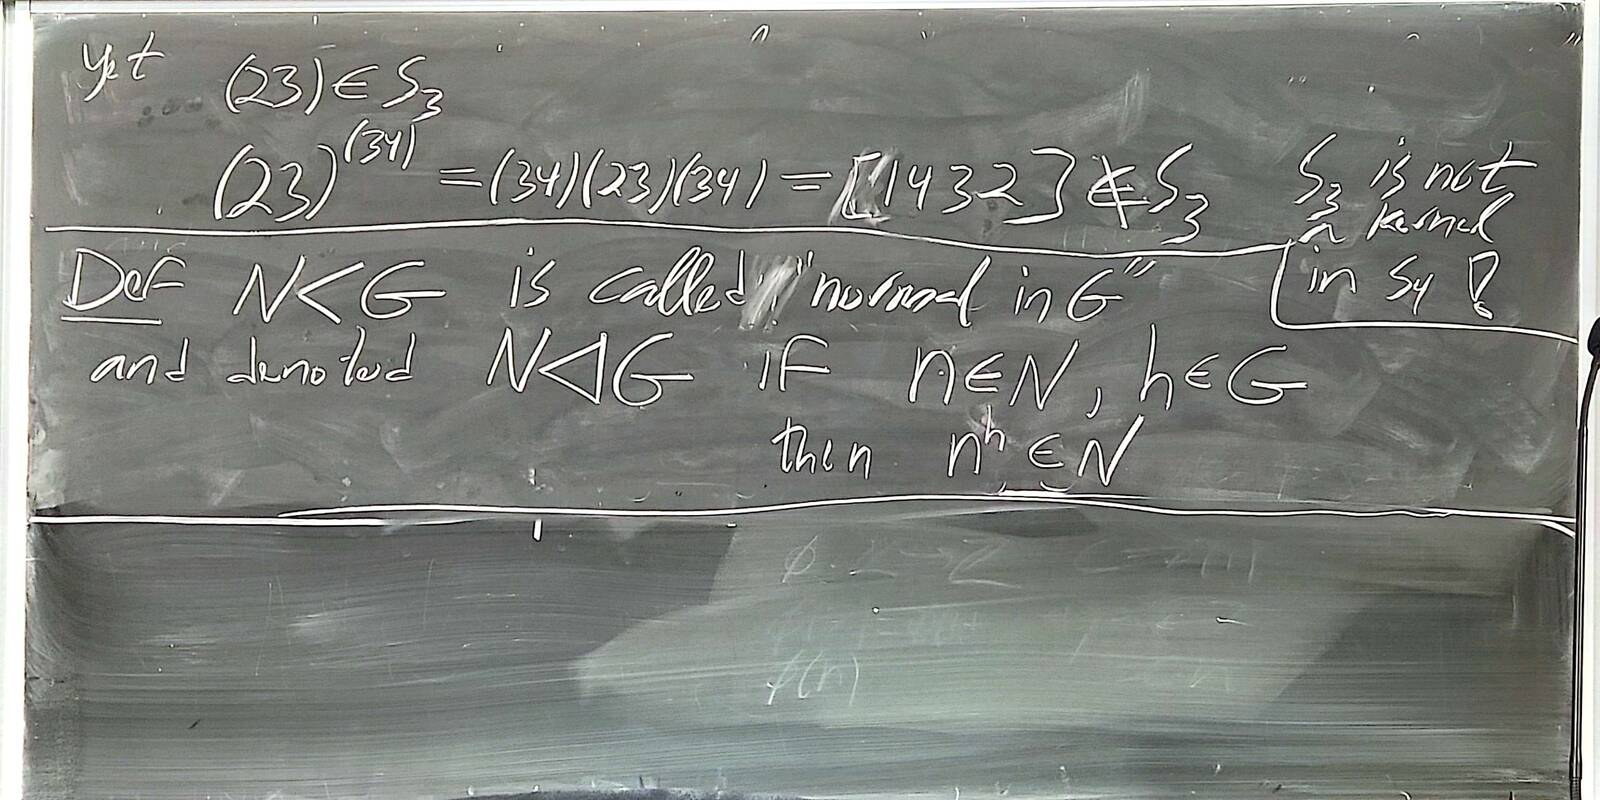 yet (23) ∈ S₃
(23)^(34) = (34)(23)(34) = [1432] ∉ S₃
S₃ is not
a kernel
in S₄ !
Def N<G is called "normal in G"
and denoted N⊲G if n∈N, h∈G
then n^h ∈ N
φ(n)